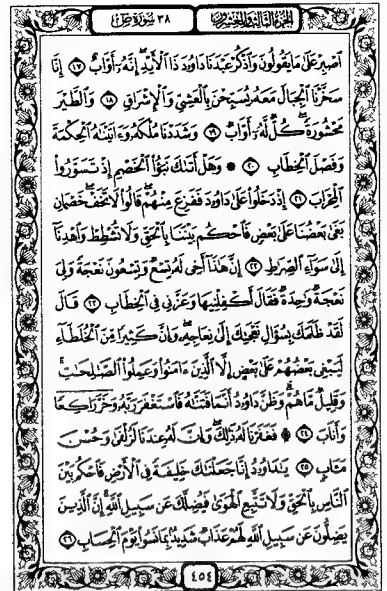 الجزء الثالث والعشرون ٣٨ سورة ص
ٱصْبِرْ عَلَىٰ مَا يَقُولُونَ وَٱذْكُرْ عَبْدَنَا دَاوُۥدَ ذَا ٱلْأَيْدِ إِنَّهُۥٓ أَوَّابٌ ١٧ إِنَّا
سَخَّرْنَا ٱلْجِبَالَ مَعَهُۥ يُسَبِّحْنَ بِٱلْعَشِىِّ وَٱلْإِشْرَاقِ ١٨ وَٱلطَّيْرَ
مَحْشُورَةً كُلٌّ لَّهُۥٓ أَوَّابٌ ١٩ وَشَدَدْنَا مُلْكَهُۥ وَءَاتَيْنَٰهُ ٱلْحِكْمَةَ
وَفَصْلَ ٱلْخِطَابِ ٢٠ ۞ وَهَلْ أَتَىٰكَ نَبَؤُا۟ ٱلْخَصْمِ إِذْ تَسَوَّرُوا۟
ٱلْمِحْرَابَ ٢١ إِذْ دَخَلُوا۟ عَلَىٰ دَاوُۥدَ فَفَزِعَ مِنْهُمْ قَالُوا۟ لَا تَخَفْ خَصْمَانِ
بَغَىٰ بَعْضُنَا عَلَىٰ بَعْضٍ فَٱحْكُم بَيْنَنَا بِٱلْحَقِّ وَلَا تُشْطِطْ وَٱهْدِنَآ
إِلَىٰ سَوَآءِ ٱلصِّرَٰطِ ٢٢ إِنَّ هَٰذَآ أَخِى لَهُۥ تِسْعٌ وَتِسْعُونَ نَعْجَةً وَلِىَ
نَعْجَةٌ وَٰحِدَةٌ فَقَالَ أَكْفِلْنِيهَا وَعَزَّنِى فِى ٱلْخِطَابِ ٢٣ قَالَ
لَقَدْ ظَلَمَكَ بِسُؤَالِ نَعْجَتِكَ إِلَىٰ نِعَاجِهِۦ وَإِنَّ كَثِيرًا مِّنَ ٱلْخُلَطَآءِ
لَيَبْغِى بَعْضُهُمْ عَلَىٰ بَعْضٍ إِلَّا ٱلَّذِينَ ءَامَنُوا۟ وَعَمِلُوا۟ ٱلصَّٰلِحَٰتِ
وَقَلِيلٌ مَّا هُمْ وَظَنَّ دَاوُۥدُ أَنَّمَا فَتَنَّٰهُ فَٱسْتَغْفَرَ رَبَّهُۥ وَخَرَّ رَاكِعًا
وَأَنَابَ ٢٤ ۞ فَغَفَرْنَا لَهُۥ ذَٰلِكَ وَإِنَّ لَهُۥ عِندَنَا لَزُلْفَىٰ وَحُسْنَ
مَـَٔابٍ ٢٥ يَٰدَاوُۥدُ إِنَّا جَعَلْنَٰكَ خَلِيفَةً فِى ٱلْأَرْضِ فَٱحْكُم بَيْنَ
ٱلنَّاسِ بِٱلْحَقِّ وَلَا تَتَّبِعِ ٱلْهَوَىٰ فَيُضِلَّكَ عَن سَبِيلِ ٱللَّهِ إِنَّ ٱلَّذِينَ
يَضِلُّونَ عَن سَبِيلِ ٱللَّهِ لَهُمْ عَذَابٌ شَدِيدٌۢ بِمَا نَسُوا۟ يَوْمَ ٱلْحِسَابِ ٢٦
٤٥٤